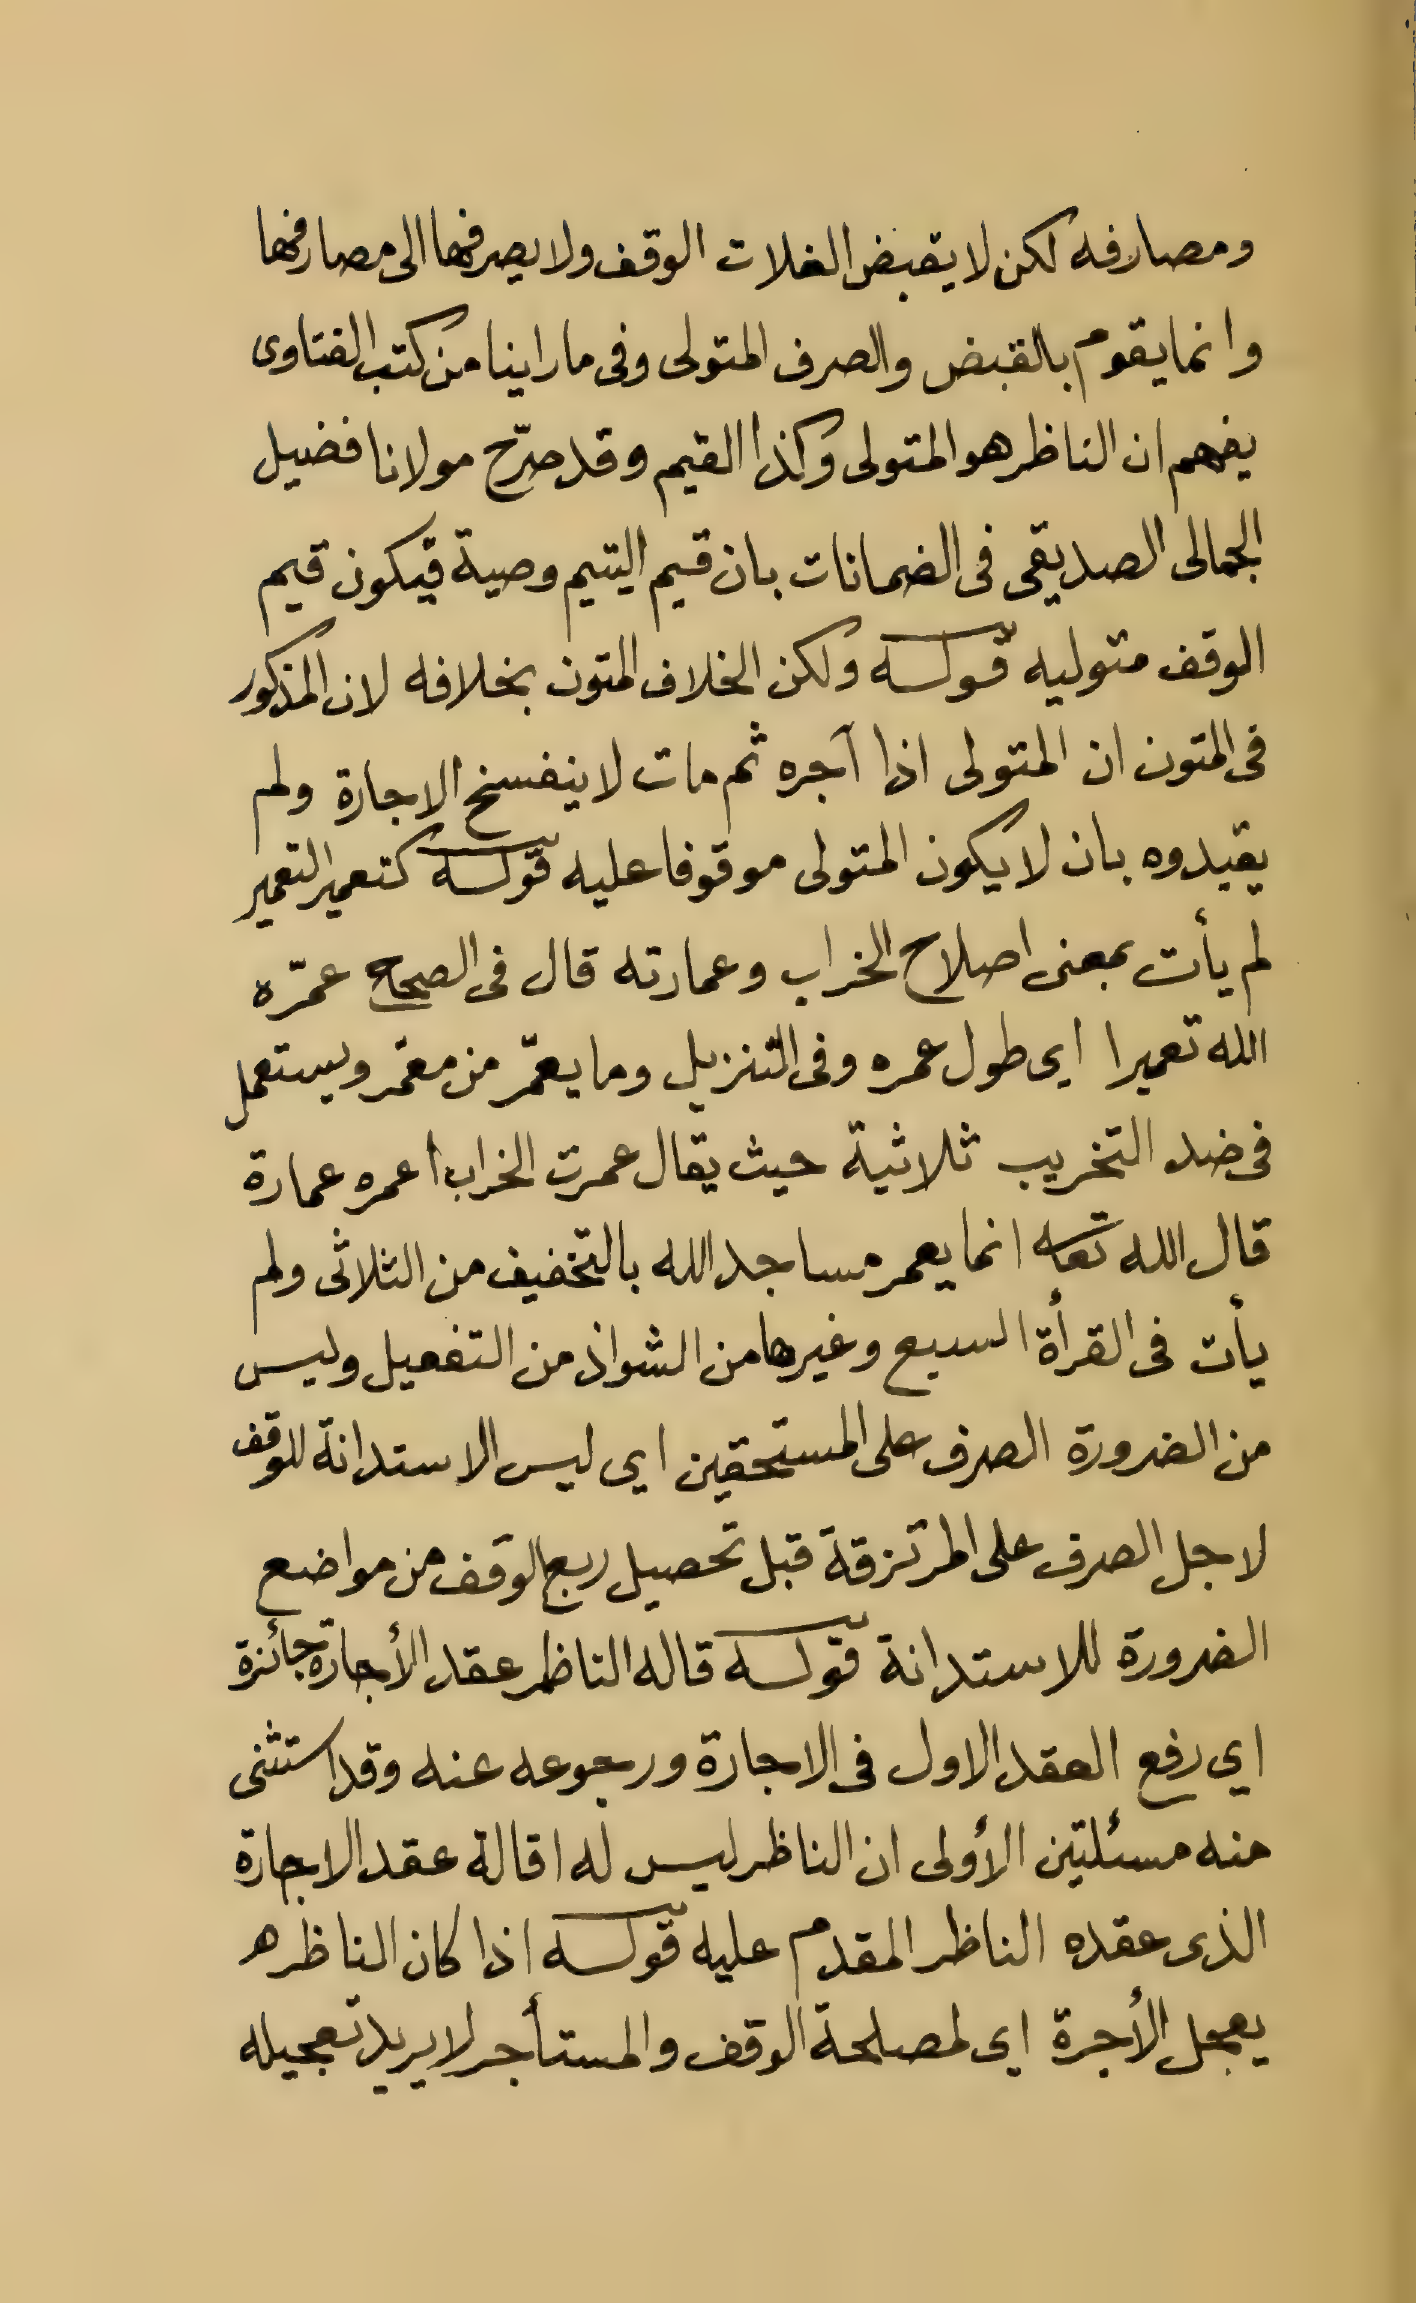 ومصارفه لكن لا يقبض الغلات الوقف ولا يصرفها الى مصارفها
وانما يقوم بالقبض والصرف المتولى وفى ما راينا من كتب الفتاوى
يفهم ان الناظر هو المتولى وكذا القيم وقد صرّح مولانا فضيل
الجمالى الصديقى فى الضمانات بان قيم اليتيم وصية فيكون قيم
الوقف متوليه قوله ولكن الخلاف المتون بخلافه لان المذكور
فى المتون ان المتولى اذا آجره ثم مات لا ينفسخ الاجارة ولم
يقيدوه بان لا يكون المتولى موقوفا عليه قوله كتعمير التعمير
لم يأت بمعنى اصلاح الخراب وعمارته قال فى الصحاح عمّره
الله تعميرا اى طول عمره وفى التنزيل وما يعمّر من معمّر ويستعمل
فى ضد التخريب ثلاثية حيث يقال عمرت الخراب اعمره عمارة
قال الله تعا انما يعمر مساجد الله بالتخفيف من الثلاثى ولم
يأت فى القرأة السبع وغيرها من الشواذ من التفعيل وليس
من الضرورة الصرف على المستحقين اى ليس الاستدانة للوقف
لاجل الصرف على المرتزقة قبل تحصيل ريع الوقف من مواضع
الضرورة للاستدانة قوله قاله الناظر عقد الأجارة جائزة
اى رفع العقد الاول فى الاجارة ورجوعه عنه وقد استثنى
منه مسئلتين الأولى ان الناظر ليس له اقالة عقد الاجارة
الذى عقده الناظر المقدم عليه قوله اذا كان الناظر ه
يعجل الأجرة اى لمصلحة الوقف والمستأجر لا يريد تعجيله